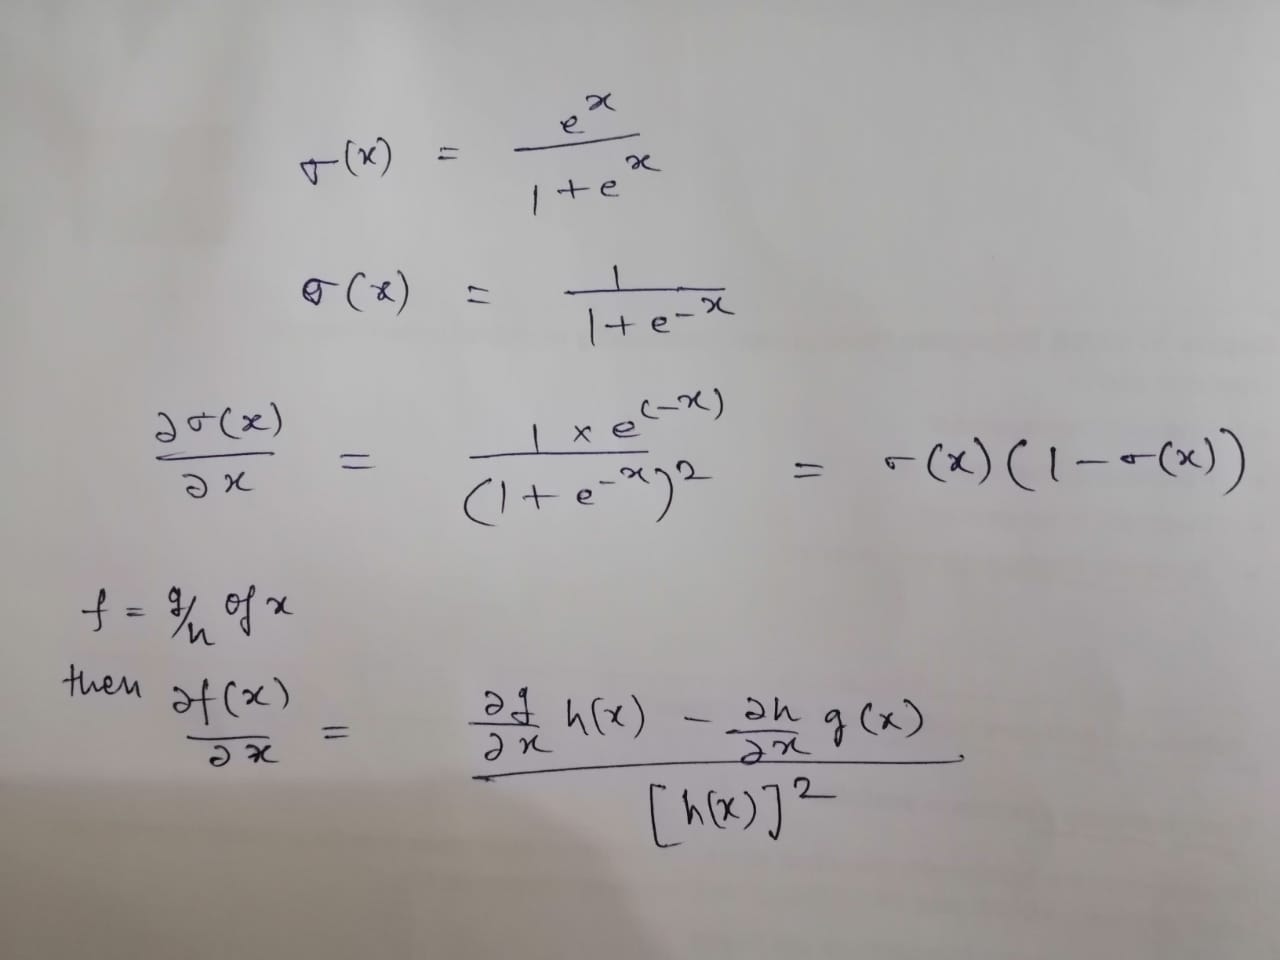 σ(x) = e^x / (1 + e^x)
σ(x) = 1 / (1 + e^-x)
∂σ(x)/∂x = (1 × e^(-x)) / (1 + e^-x)^2 = σ(x)(1 - σ(x))
f = g/h of x
then ∂f(x)/∂x = (∂g/∂x h(x) - ∂h/∂x g(x)) / [h(x)]^2